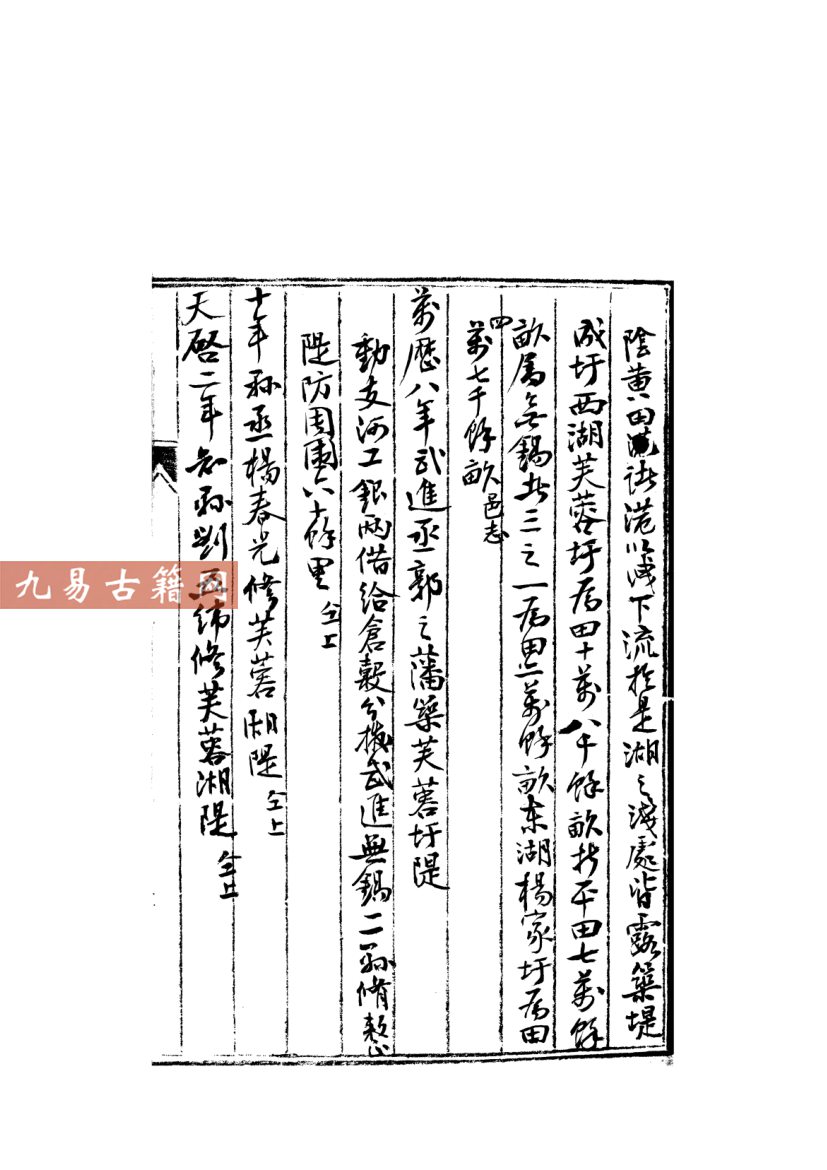 陰黄田諸港以洩下流於是湖之淺處皆露築堤
成圩西湖芙蓉圩為田十萬八千餘畝折平田七萬餘
畝屬無錫者三之一為田二萬餘畝東湖楊家圩為田
四萬七千餘畝邑志
萬歷八年武進丞郭之藩築芙蓉圩隄
動支河工銀兩借給倉穀分撥武進無錫二縣脩整
隄防周圍六十餘里 仝上
十年縣丞楊春光修芙蓉湖隄 仝上
天啓二年知縣劉五緯修芙蓉湖隄 仝上
九易古籍网